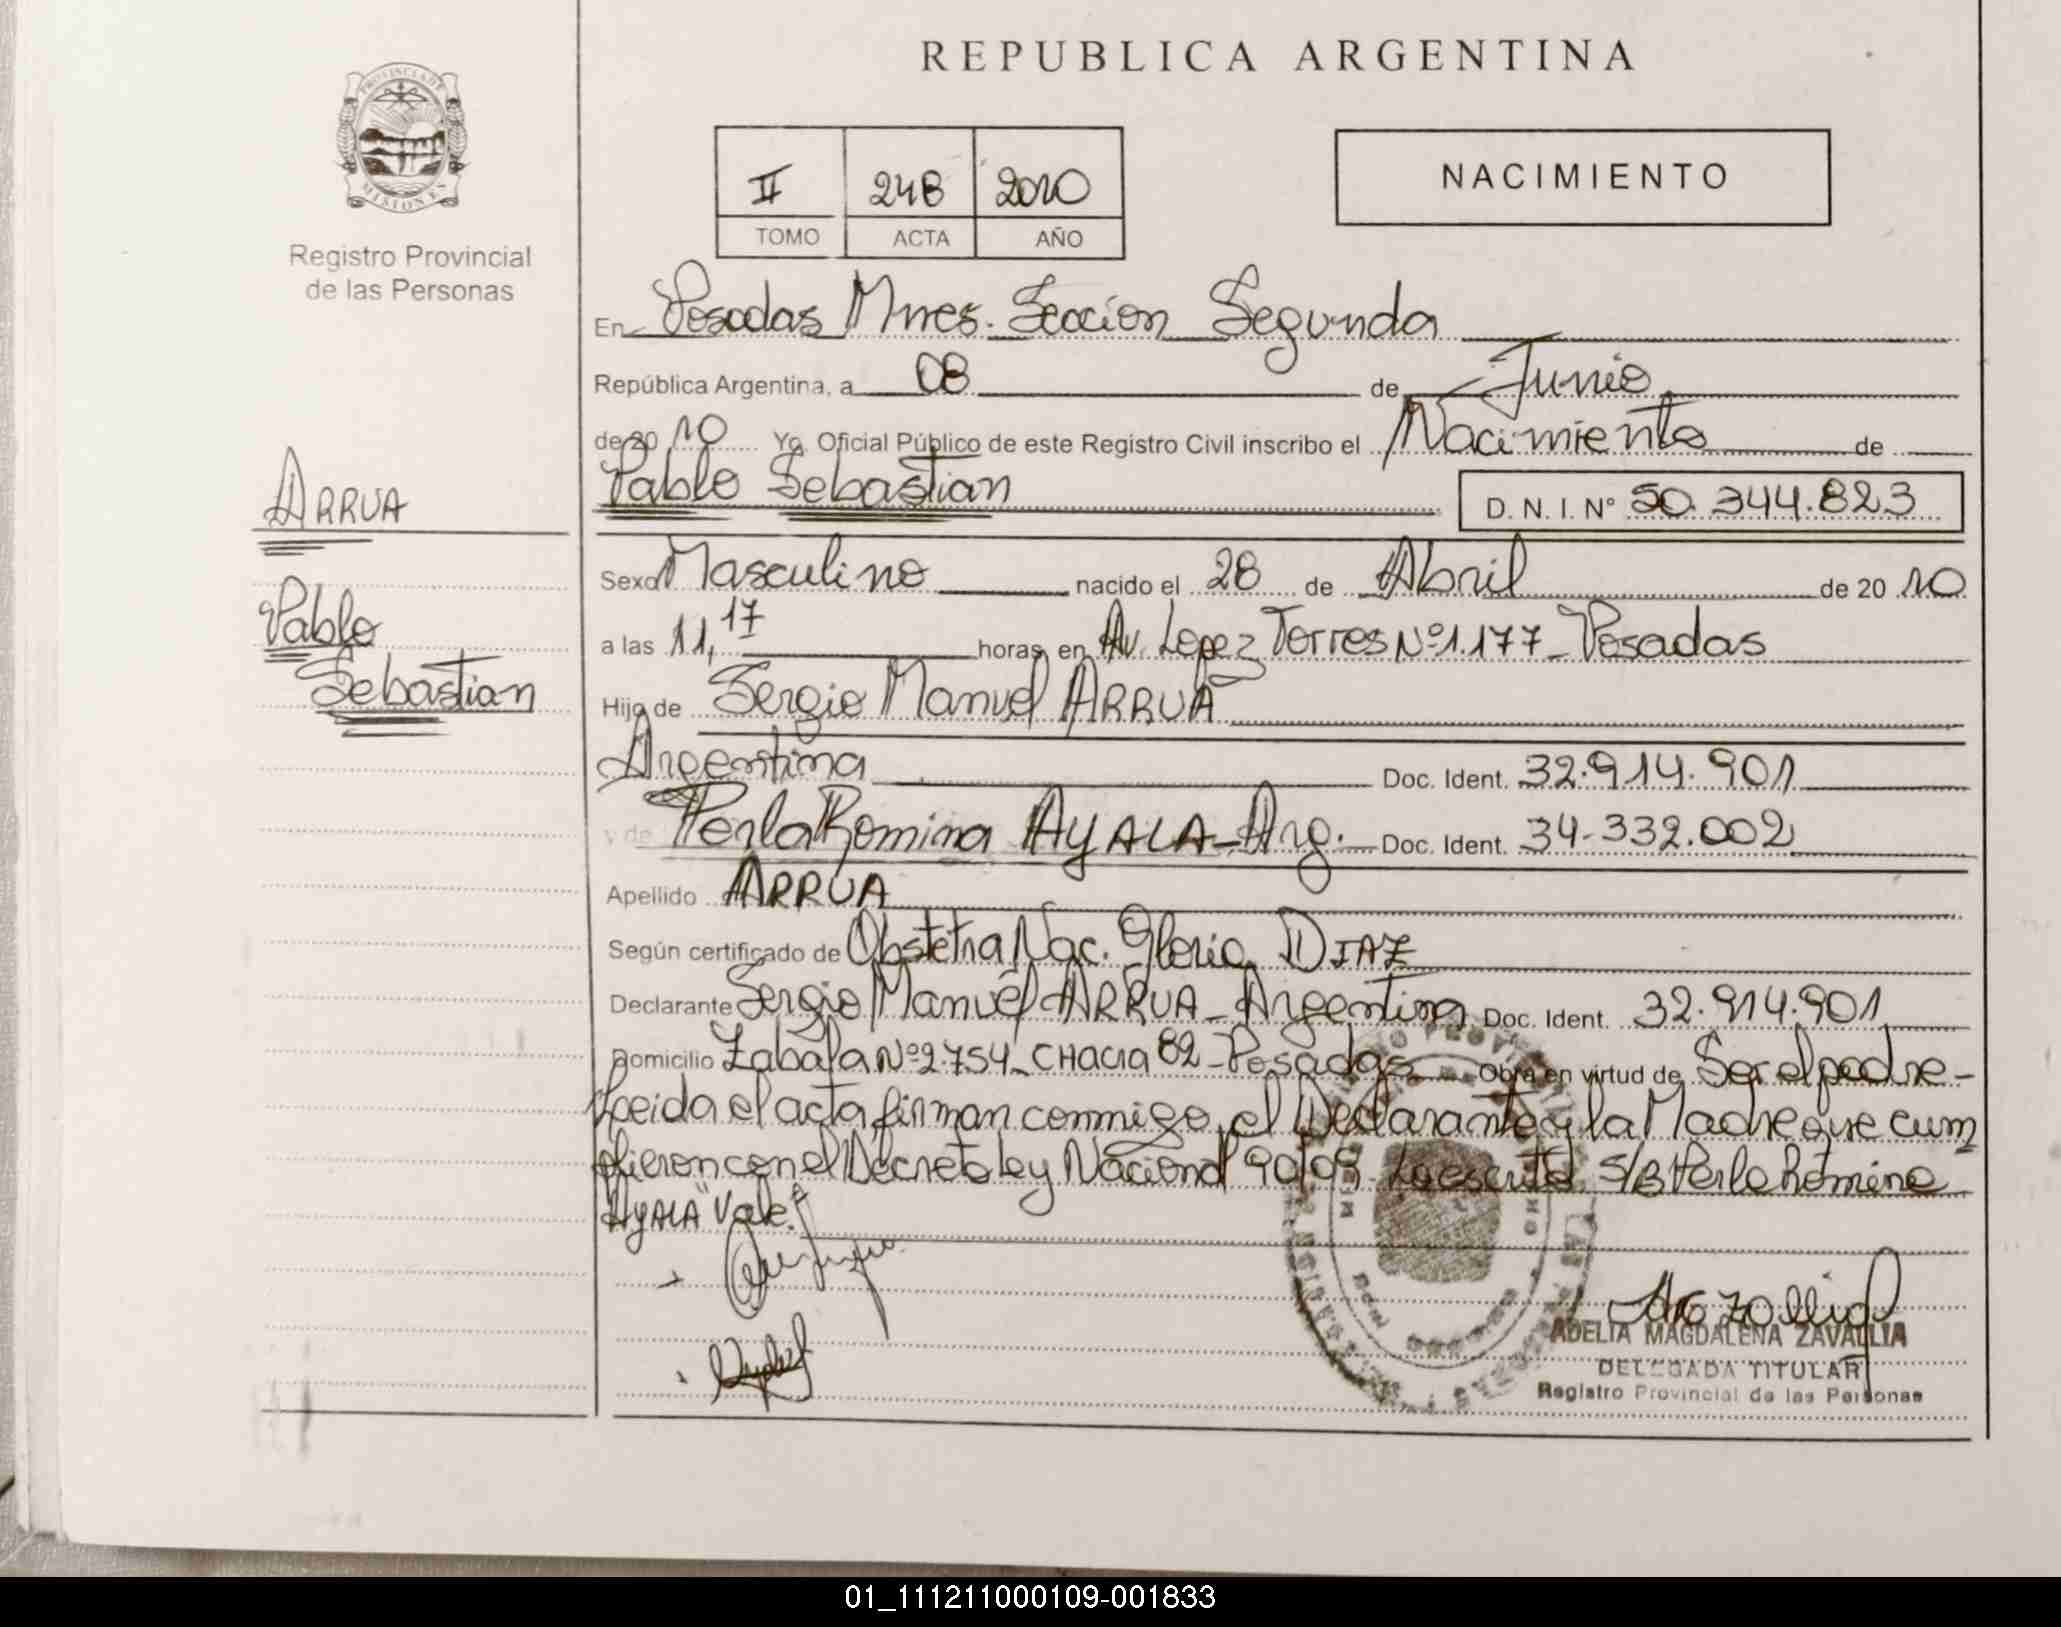 REPUBLICA ARGENTINA
PROVINCIA DE MISIONES
Registro Provincial
de las Personas
II 248 2010
TOMO ACTA AÑO
NACIMIENTO
En Posadas Mnes. Sección Segunda
República Argentina, a 08 de Junio
de 2010 Yo, Oficial Público de este Registro Civil inscribo el Nacimiento de
Pablo Sebastian D. N. I. Nº 50.344.823
ARRUA
Pablo
Sebastian
Sexo Masculino nacido el 28 de Abril de 2010
a las 11,17 horas, en Av. Lopez Torres Nº 1.177 - Posadas
Hijo de Sergio Manuel ARRUA
Argentina Doc. Ident. 32.914.901
y de Perla Romina AYALA - Arg. Doc. Ident. 34-332.002
Apellido ARRUA
Según certificado de Obstetra Nac. Gloria DIAZ
Declarante Sergio Manuel ARRUA - Argentina Doc. Ident. 32.914.901
Domicilio Zabala Nº 2.754 - CHACRA 82 - Posadas Obra en virtud de Ser el padre -
Leida el acta firman conmigo el Declarante y la Madre que cum
plieron con el Decreto ley Nacional 90/09. Lo escrito S/B Perla Romina
AYALA" Vale.
ADELIA MAGDALENA ZAVALLIA
DELEGADA TITULAR
Registro Provincial de las Personas
01_111211000109-001833